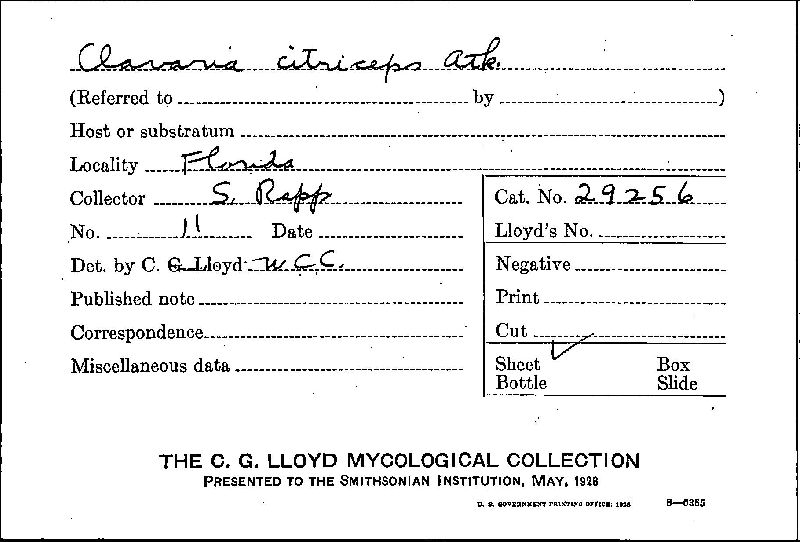 Clavaria citriceps Atk.
(Referred to by )
Host or substratum
Locality Florida
Collector S. Rapp
No. 11 Date
Det. by C. G. Lloyd W.C.C.
Published note
Correspondence
Miscellaneous data
Cat. No. 29256
Lloyd's No.
Negative
Print
Cut
Sheet Box
Bottle Slide
THE C. G. LLOYD MYCOLOGICAL COLLECTION
PRESENTED TO THE SMITHSONIAN INSTITUTION, MAY, 1928
U. S. GOVERNMENT PRINTING OFFICE: 1928 8—6355